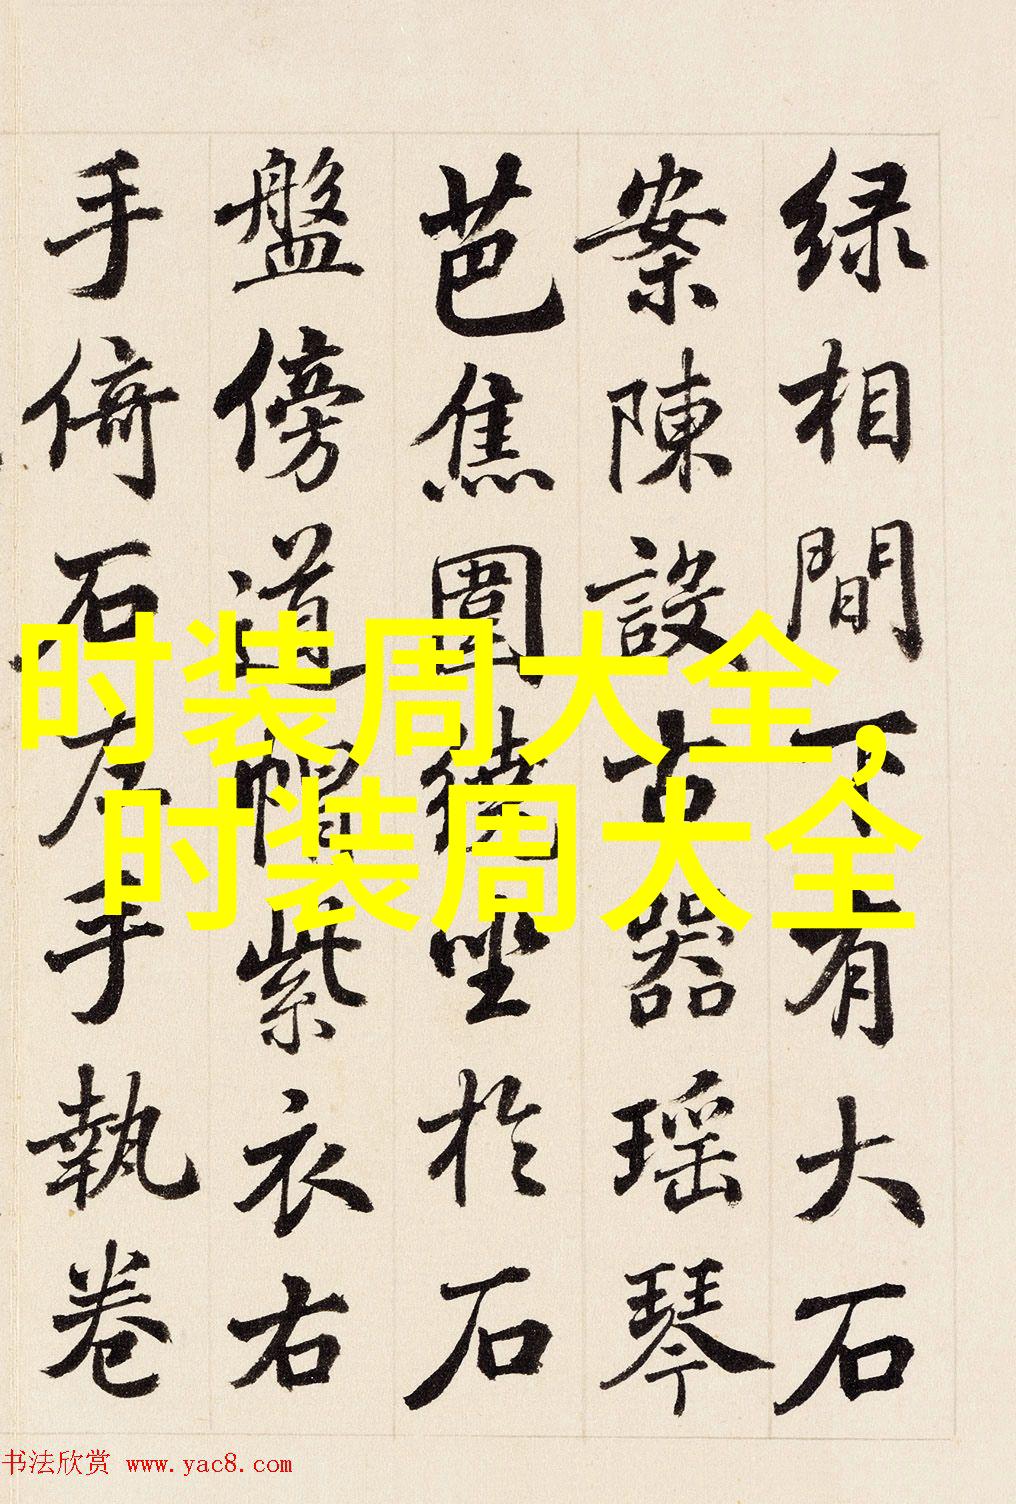 绿相間下有大石
案陳設古器瑶琴
芭焦圍繞坐於石
盤傍道帽紫衣右
手倚石左手執卷
时装周大全,
时装周大全
书法欣赏 www.yac8.com